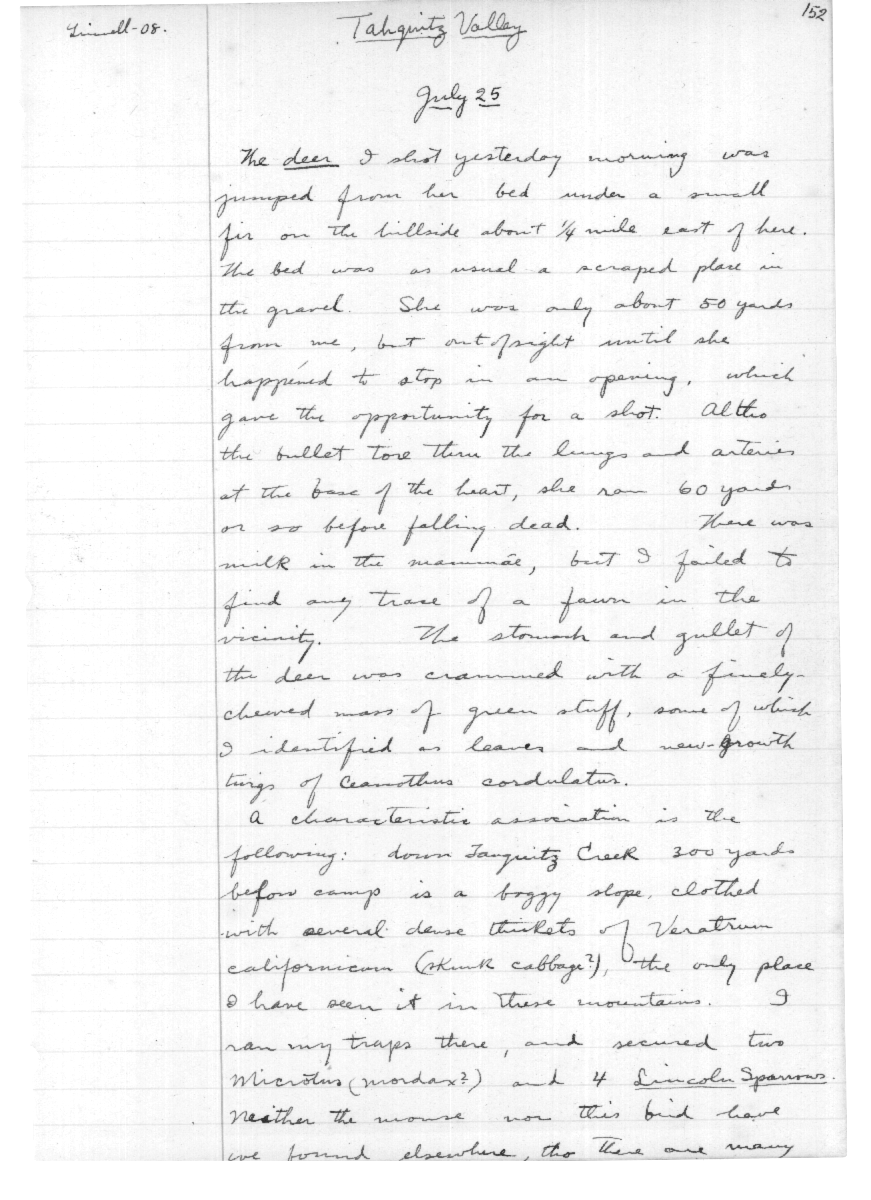 Grinnell-08.
Tahquitz Valley
152
July 25
The deer I shot yesterday morning was
jumped from her bed under a small
fir on the hillside about 1/4 mile east of here.
The bed was as usual a scraped place in
the gravel. She was only about 50 yards
from me, but out of sight until she
happened to stop in an opening, which
gave the opportunity for a shot. Altho
the bullet tore thru the lungs and arteries
at the base of the heart, she ran 60 yards
or so before falling dead. There was
milk in the mammae, but I failed to
find any trace of a fawn in the
vicinity. The stomach and gullet of
the deer was crammed with a finely-
chewed mass of green stuff, some of which
I identified as leaves and new-growth
twigs of Ceanothus cordulatus.
A characteristic association is the
following: down Tauquitz Creek 300 yards
below camp is a boggy slope, clothed
with several dense thickets of Veratrum
californicum (skunk cabbage?), the only place
I have seen it in these mountains. I
ran my traps there, and secured two
Microtus (mordax?) and 4 Lincoln Sparrows.
Neither the mouse nor this bird have
we found elsewhere, tho there are many